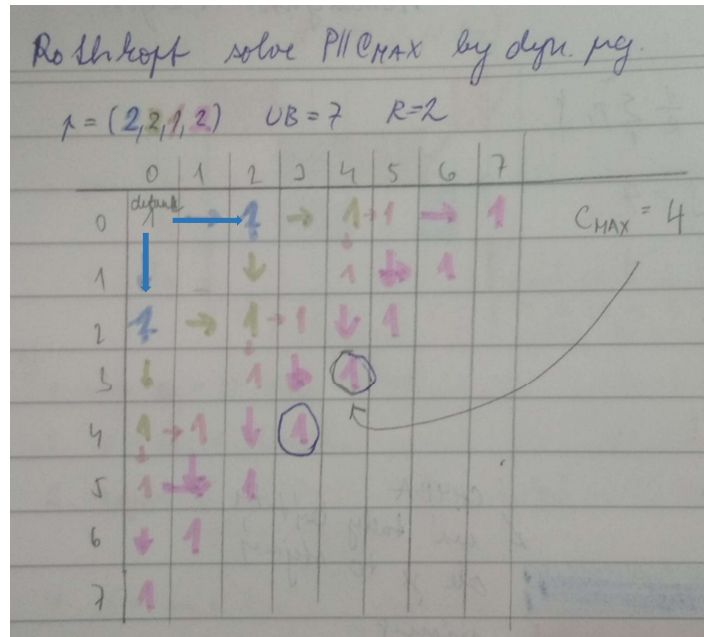 Rothkopf solve P||CMAX by dyn. prg.
p = (2,2,1,2) UB=7 R=2
0 1 2 3 4 5 6 7
0 default 1 1 1 1 1 CMAX = 4
1 1 1
2 1 1 1 1
3 1 1
4 1 1 1
5 1 1
6 1
7 1